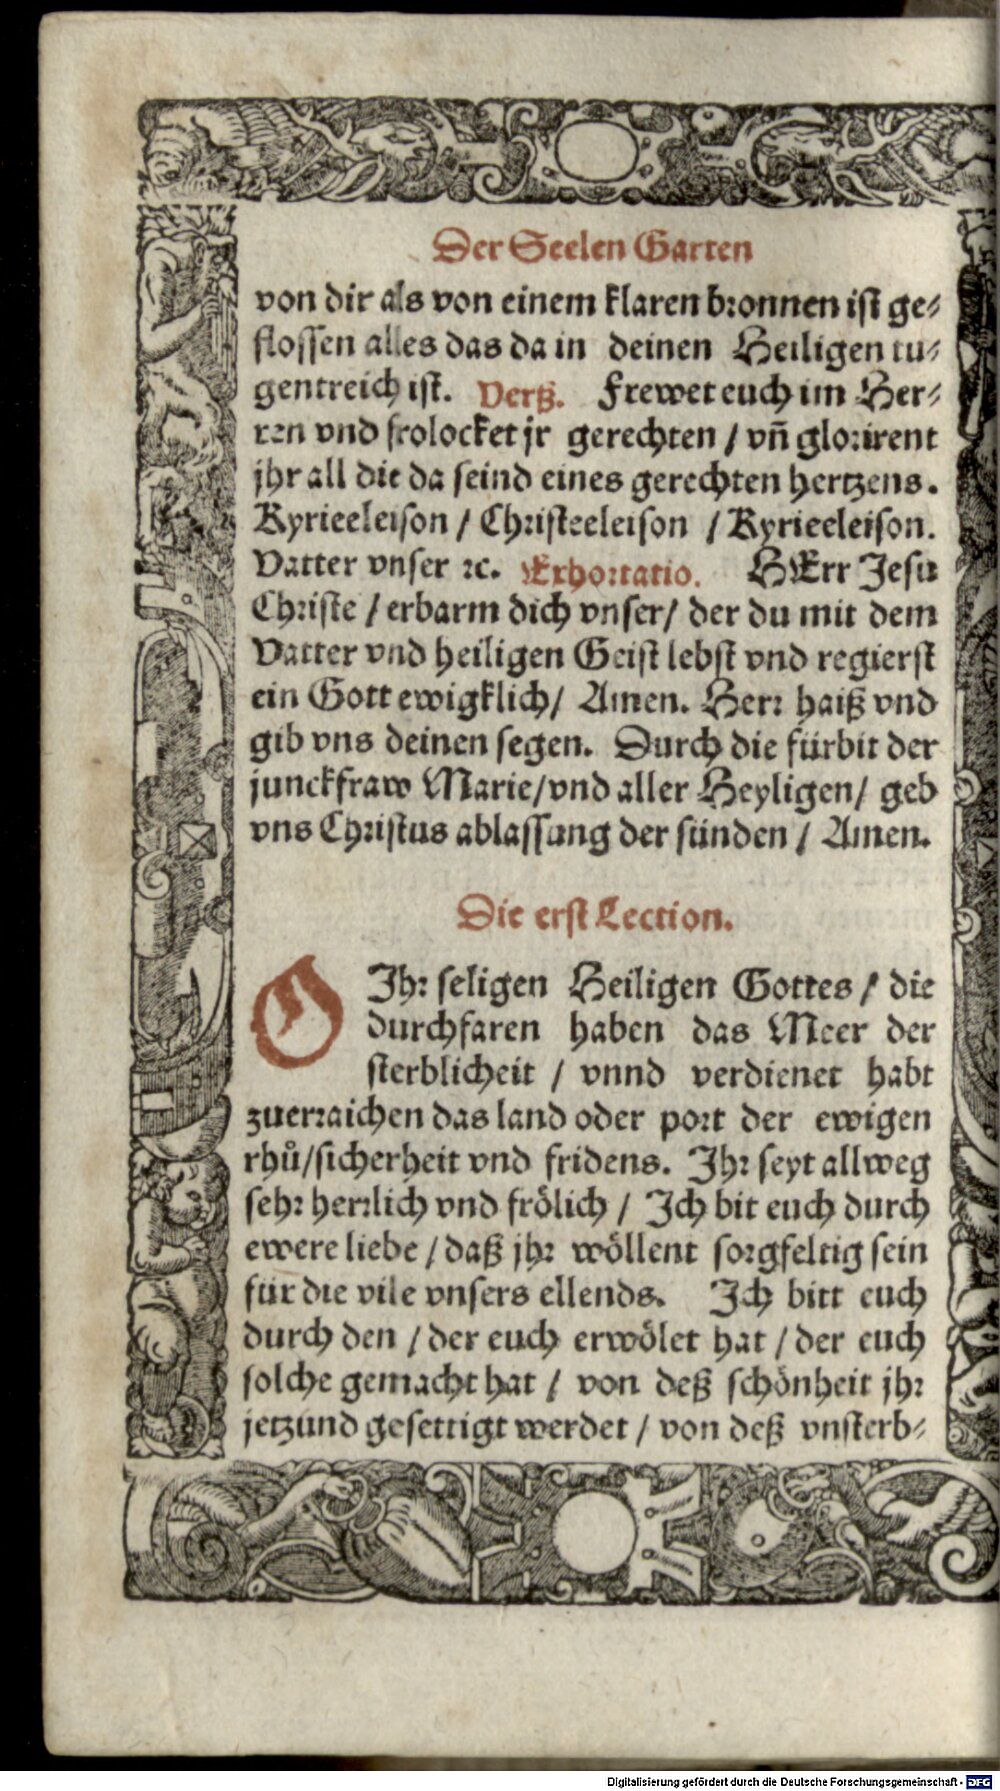 Der Seelen Garten
von dir als von einem klaren bronnen ist ge⸗
flossen alles das da in deinen Heiligen tu⸗
gentreich ist. Versz. Frewet euch im Her⸗
ren vnd frolocket jr gerechten / vñ glorirent
jhr all die da seind eines gerechten hertzens.
Kyrieeleison / Christeeleison / Kyrieeleison.
Vatter vnser ꝛc. Exhortatio. HErr Jesu
Christe / erbarm dich vnser / der du mit dem
Vatter vnd heiligen Geist lebst vnd regierst
ein Gott ewigklich / Amen. Herr haiß vnd
gib vns deinen segen. Durch die fürbit der
junckfraw Marie / vnd aller Heyligen / geb
vns Christus ablassung der sünden / Amen.
Die erst Lection.
O Jhr seligen Heiligen Gottes / die
durchfaren haben das Meer der
sterblicheit / vnnd verdienet habt
zuerraichen das land oder port der ewigen
rhů / sicherheit vnd fridens. Jhr seyt allweg
sehr herrlich vnd frölich / Jch bit euch durch
ewere liebe / daß jhr wöllent sorgfeltig sein
für die vile vnsers ellends. Jch bitt euch
durch den / der euch erwölet hat / der euch
solche gemacht hat / von deß schönheit jhr
jetzund gesettigt werdet / von deß vnsterb⸗
Digitalisierung gefördert durch die Deutsche Forschungsgemeinschaft - DFG